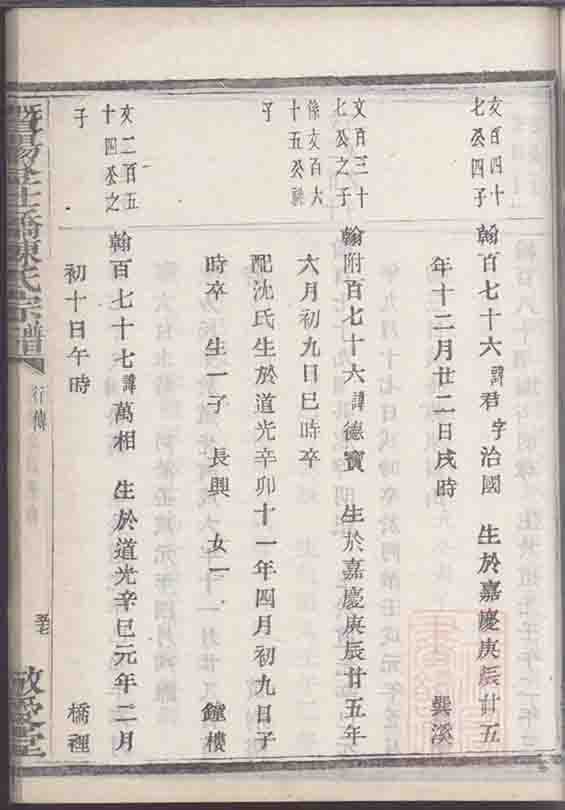 文百四十
七公四子
翰百七十六諱君字治國 生於嘉慶庚辰廿五
年十二月廿二日戌時 龔溪
文百三十
七公之子
翰附百七十六諱德寶 生於嘉慶庚辰廿五年
係文百六
十五公
六月初九日巳時卒
子
配沈氏生於道光辛卯十一年四月初九日子
時卒 生一子 長興 女一 鐘樓
文二百五
十四公之
子
翰百七十七諱萬相 生於道光辛巳元年二月
初十日午時 橋裡
暨陽 橋陳氏宗譜
行傳
敬愛堂